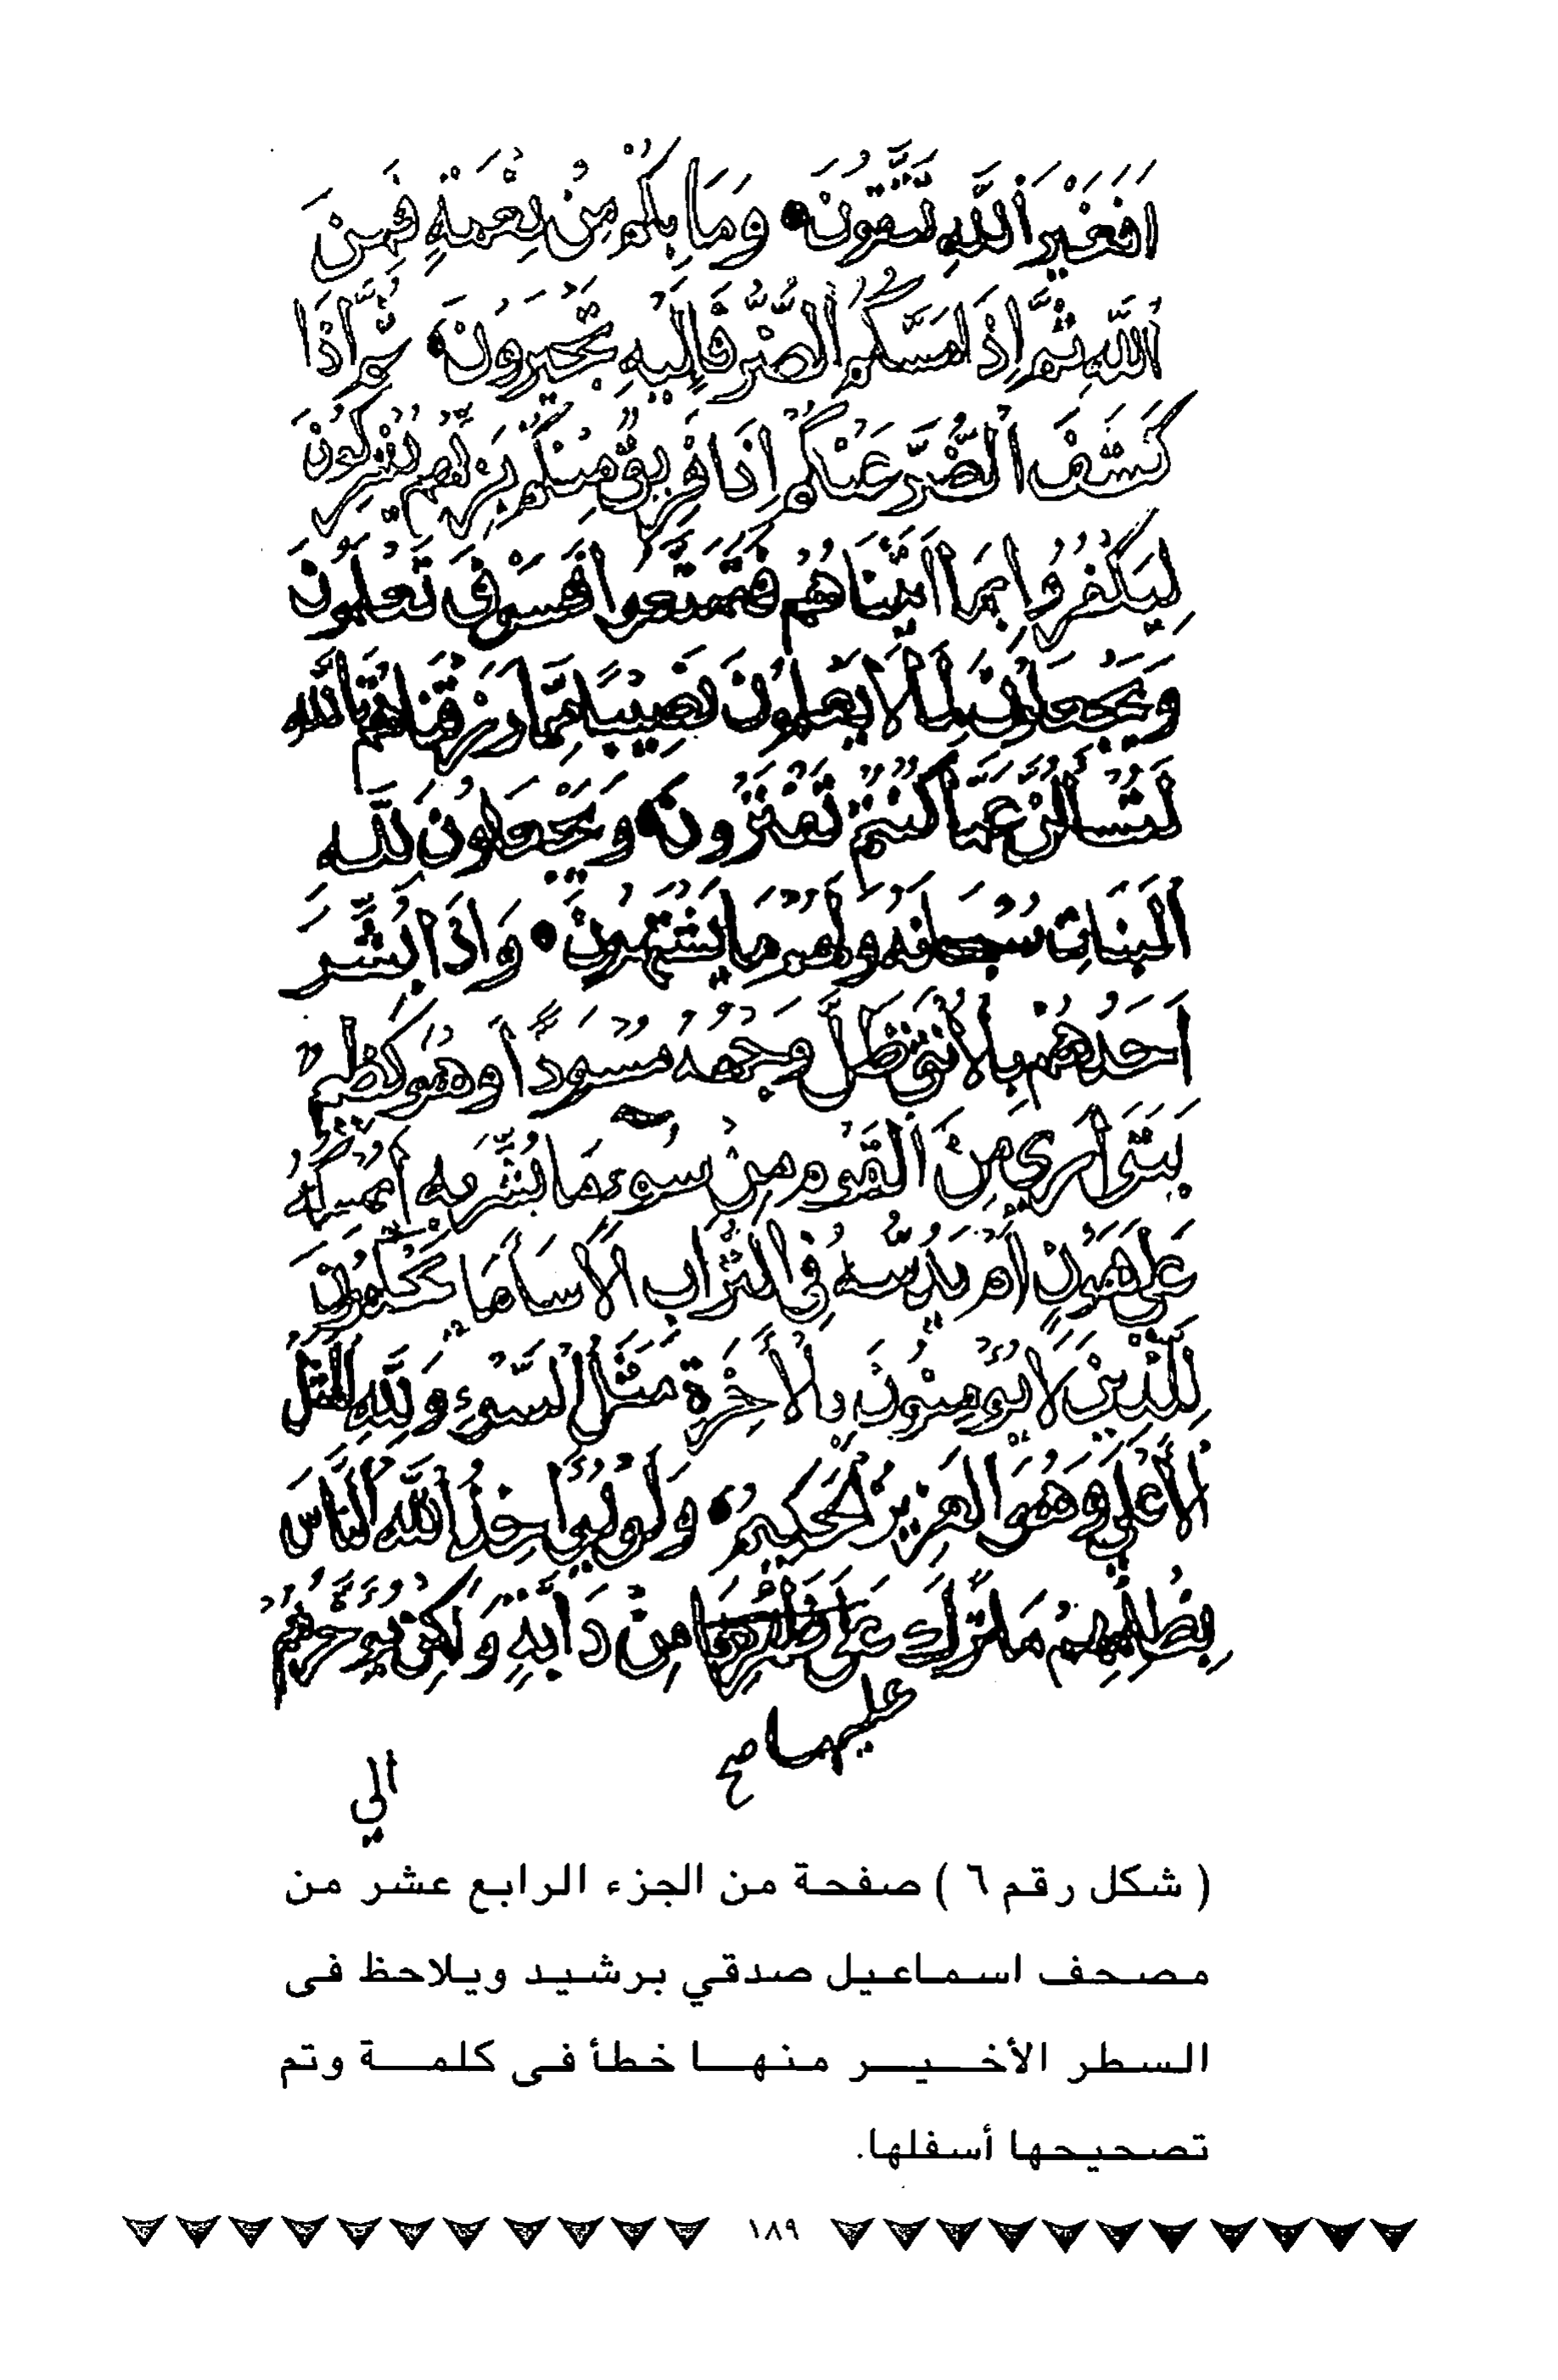 اَفَغَيْرَ اَللَّهِ تَتَّقُونَ وَمَا بِكُمْ مِنْ نِعْمَةٍ فَمِنَ
اَللَّهِ ثُمَّ اِذَا مَسَّكُمُ اَلضُّرُّ فَاِلَيْهِ تَجْئَرُونَ ثُمَّ اِذَا
كَشَفَ اَلضُّرَّ عَنْكُمْ اِذَا فَرِيقٌ مِنْكُمْ بِرَبِّهِمْ يُشْرِكُونَ
لِيَكْفُرُوا بِمَا اٰتَيْنَاهُمْ فَتَمَتَّعُوا فَسَوْفَ تَعْلَمُونَ
وَيَجْعَلُونَ لِمَا لَا يَعْلَمُونَ نَصِيبًا مِمَّا رَزَقْنَاهُمْ تَاللَّهِ
لَتُسْأَلُنَّ عَمَّا كُنْتُمْ تَفْتَرُونَ وَيَجْعَلُونَ لِلَّهِ
اَلْبَنَاتِ سُبْحَانَهُ وَلَهُمْ مَا يَشْتَهُونَ وَاِذَا بُشِّرَ
اَحَدُهُمْ بِالْاُنْثَى ظَلَّ وَجْهُهُ مُسْوَدًّا وَهُوَ كَظِيمٌ
يَتَوَارَى مِنَ اَلْقَوْمِ مِنْ سُوءِ مَا بُشِّرَ بِهِ اَيُمْسِكُهُ
عَلَى هُونٍ اَمْ يَدُسُّهُ فِى التُّرَابِ اَلَا سَاءَ مَا يَحْكُمُونَ
لِلَّذِينَ لَا يُؤْمِنُونَ بِالْأَخِرَةِ مَثَلُ السَّوْءِ وَلِلَّهِ الْمَثَلُ
الْأَعْلَى وَهُوَ الْعَزِيزُ الْحَكِيمُ وَلَوْ يُؤَاخِذُ اللَّهُ النَّاسَ
بِظُلْمِهِمْ مَا تَرَكَ عَلَى ظَهْرِهَا مِنْ دَابَّةٍ وَلَكِنْ يُؤَخِّرُهُمْ
عليها صح
الي
( شكل رقم ٦ ) صفحة من الجزء الرابع عشر من
مصحف اسماعيل صدقي برشيد ويلاحظ فى
السطر الأخير منها خطأ فى كلمة وتم
تصحيحها أسفلها.
١٨٩